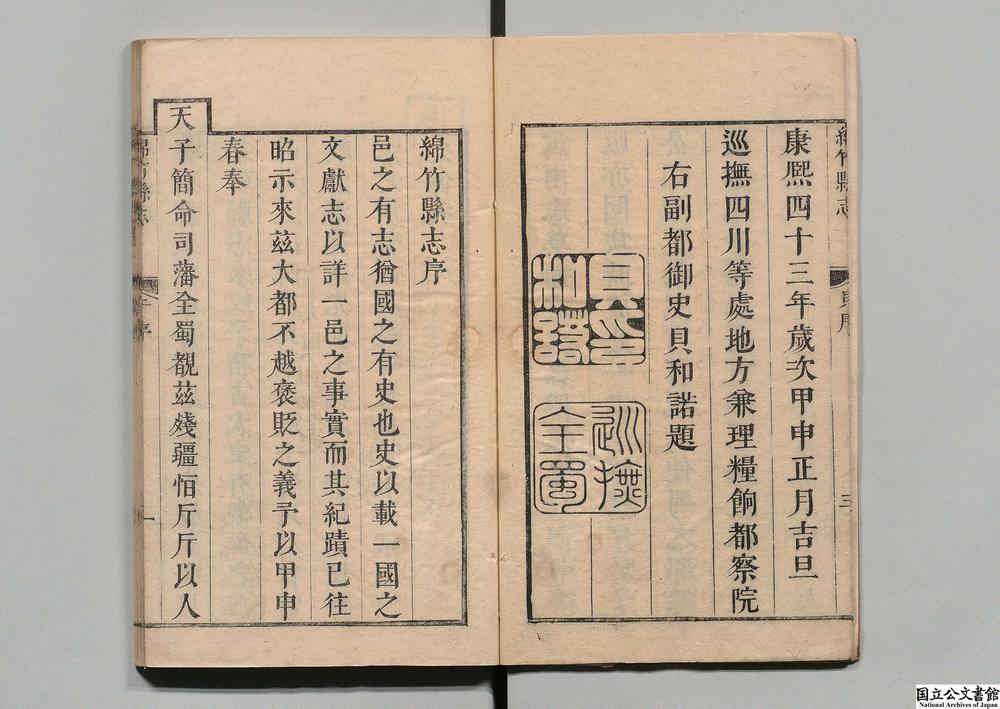 綿竹縣志
康熙四十三年歲次甲申正月吉旦
巡撫四川等處地方兼理糧餉都察院
右副都御史貝和諾題
貝印
和諾
巡撫
全蜀
三
綿竹縣志序
邑之有志猶國之有史也史以載一國之
文獻志以詳一邑之事實而其紀蹟已往
昭示來茲大都不越褒貶之義予以甲申
春奉
天子簡命司藩全蜀覩茲殘疆恒斤斤以人
綿竹縣志
序
一
国立公文書館
National Archives of Japan